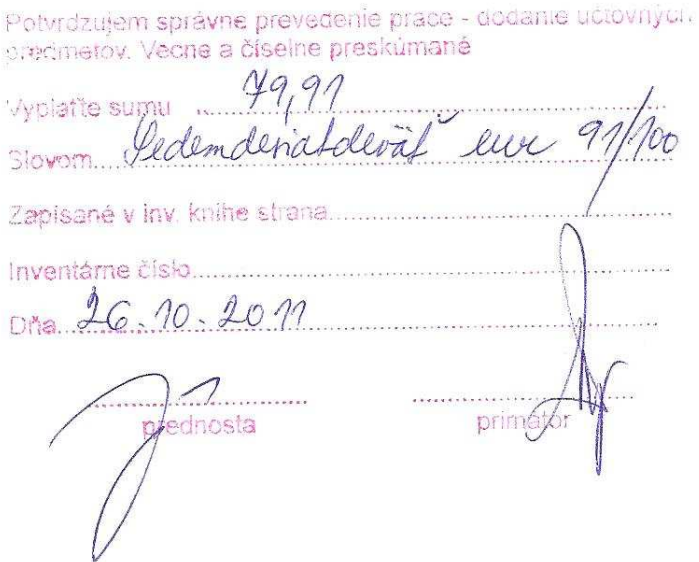 Potvrdzujem správne prevedenie práce - dodanie účtovných
predmetov. Vecne a číselne preskúmané
Vyplaťte sumu 79,91
Slovom Sedemdesiatdeväť eur 91/100
Zapísané v inv. knihe strana
Inventárne číslo
Dňa 26.10.2011
prednosta primátor